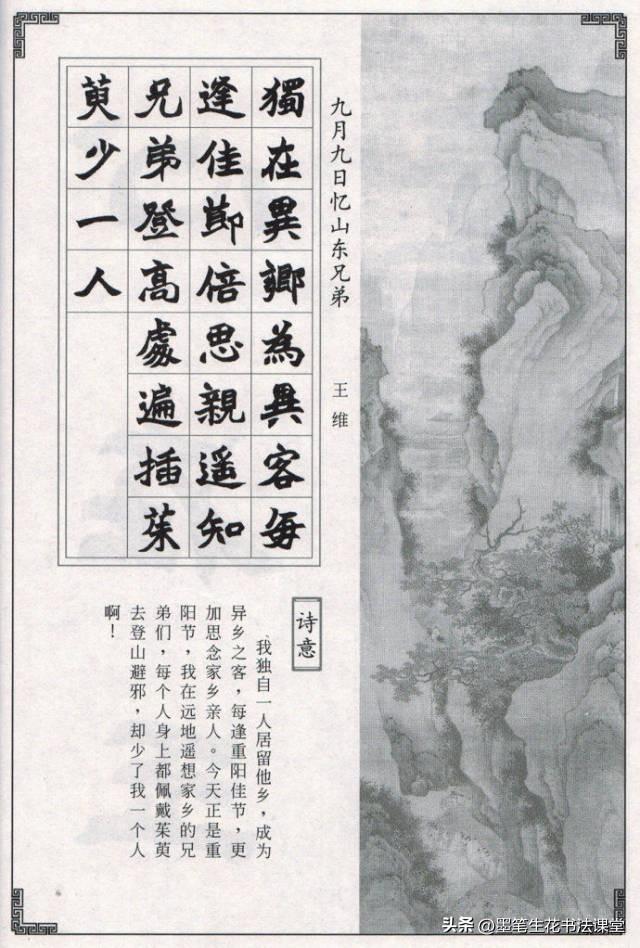 九月九日忆山东兄弟
王维
獨在異鄉為異客每
逢佳節倍思親遥知
兄弟登高處遍插茱
萸少一人
诗意
我独自一人居留他乡，成为
异乡之客，每逢重阳佳节，更
加思念家乡亲人。今天正是重
阳节，我在远地遥想家乡的兄
弟们，每个人身上都佩戴茱萸
去登山避邪，却少了我一个人
啊！
头条@墨笔生花书法课堂